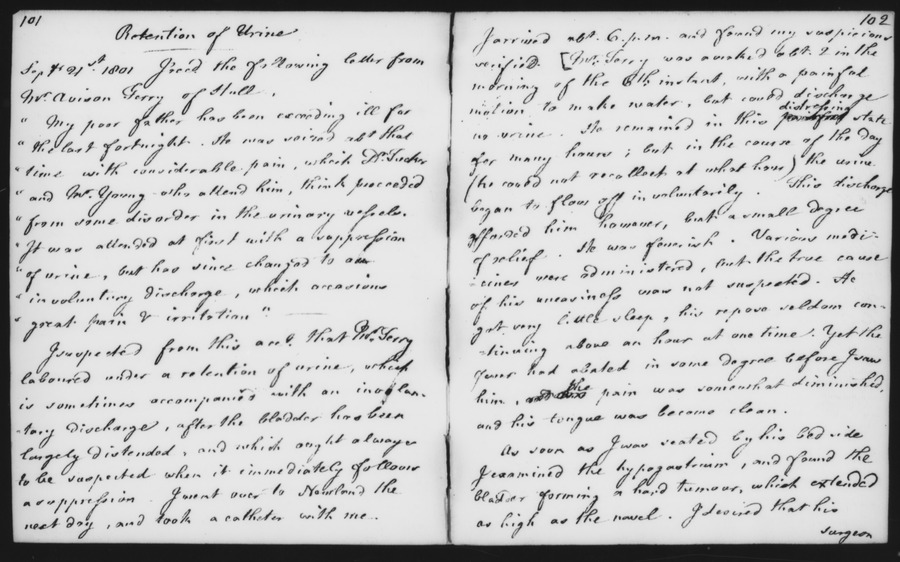 101
Retention of Urine
Sep. 21st. 1801 I rec'd the following letter from
Mr. Avison Terry of Hull.
" My poor father has been exceeding ill for
" the last fortnight. He was seized abt. that
" time with considerable pain, which Dr.
" and Mr. Young who attend him, think proceeded
" from some disorder in the urinary vessels.
" It was attended at first with a suppression
" of urine, but has since changed to an
" involuntary discharge, which occasions
" great pain & irritation "
I suspected from this acct. that Mr. Terry
laboured under a retention of urine, which
is sometimes accompanied with an involun-
tary discharge, after the bladder has been
largely distended, and which ought always
to be suspected when it immediately follows
a suppression. I went over to Newland the
next day, and took a catheter with me.
102
I arrived abt. 6. p.m. and found my suspicions
verified. [Mr. Terry was awaked abt. 2 in the
morning of the 6th instant, with a painful
motion to make water, but could discharge
no urine. He remained in this distressing state
for many hours; but in the course of the day
(he could not recollect at what hour) the urine
began to flow off involuntarily. This discharge
afforded him however, but a small degree
of relief. He was feverish. Various medi-
-cines were administered, but the true cause
of his uneasiness was not suspected. He
got very little sleep, his repose seldom con-
-tinuing above an hour at one time. Yet the
fever had abated in some degree before I saw
him, the pain was somewhat diminished,
and his tongue was become clean.
As soon as I was seated by his bed side
I examined the hypogastrium, and found the
bladder forming a hard tumour, which extended
as high as the navel. I desired that his
surgeon